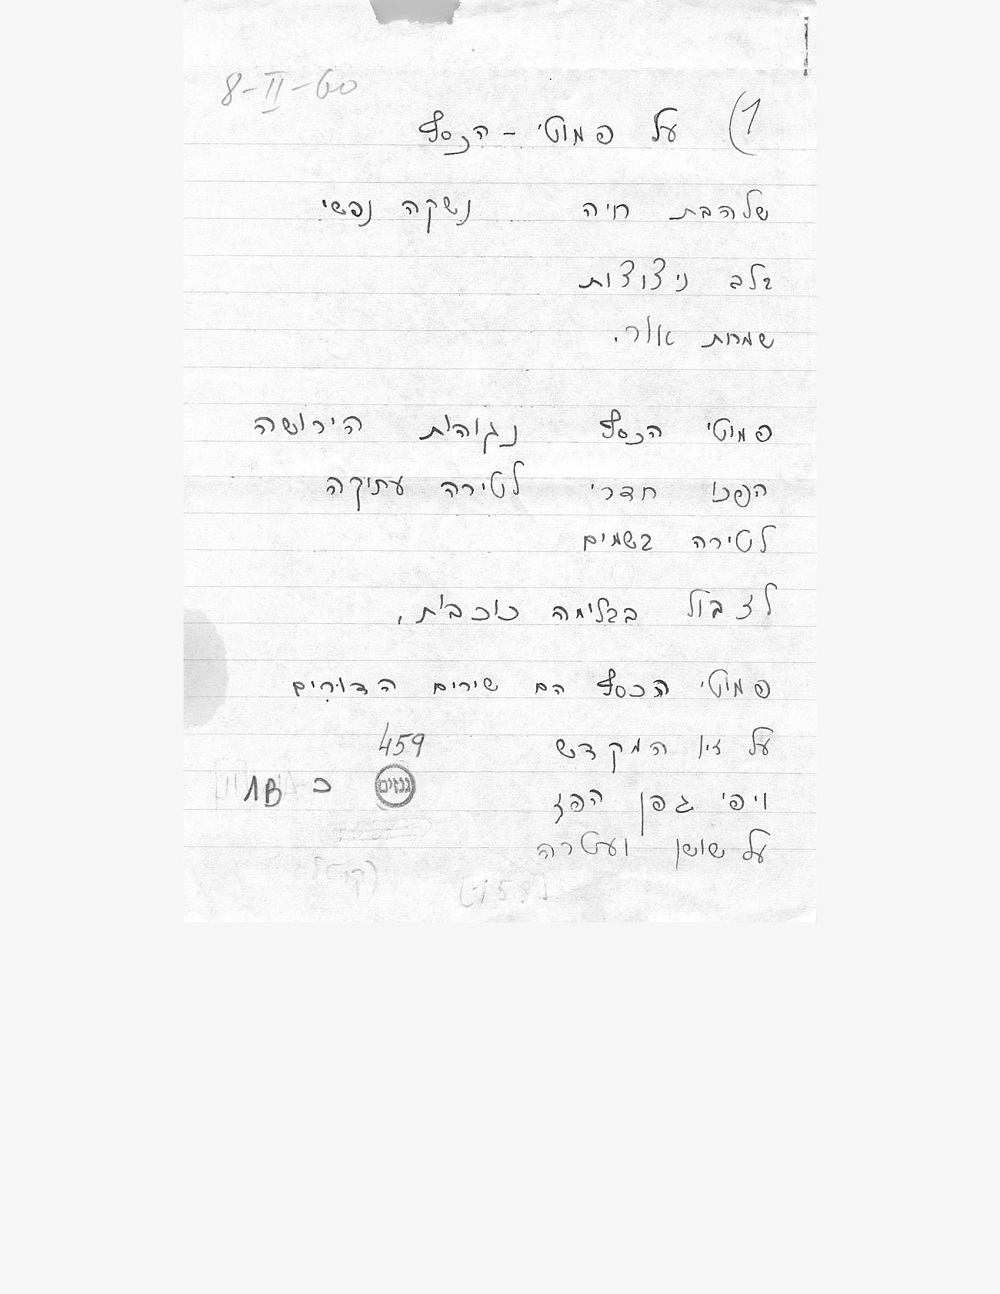 8-II-60
(1 על פמוטי - הכסף
שלהבת חיה נשקה נפשי
בלב ניצוצות
שמרות אור.
פמוטי הכסף נגוהות הירושה
הפכו חדרי לטירה עתיקה
לטירה בשמים
לזבול בגלימה כוכבית,
פמוטי הכסף הם שירים הדורים
על זיו המקדש
459
ויפי גפן הפז
גנזים
כ 1B
על שושן ועטרה